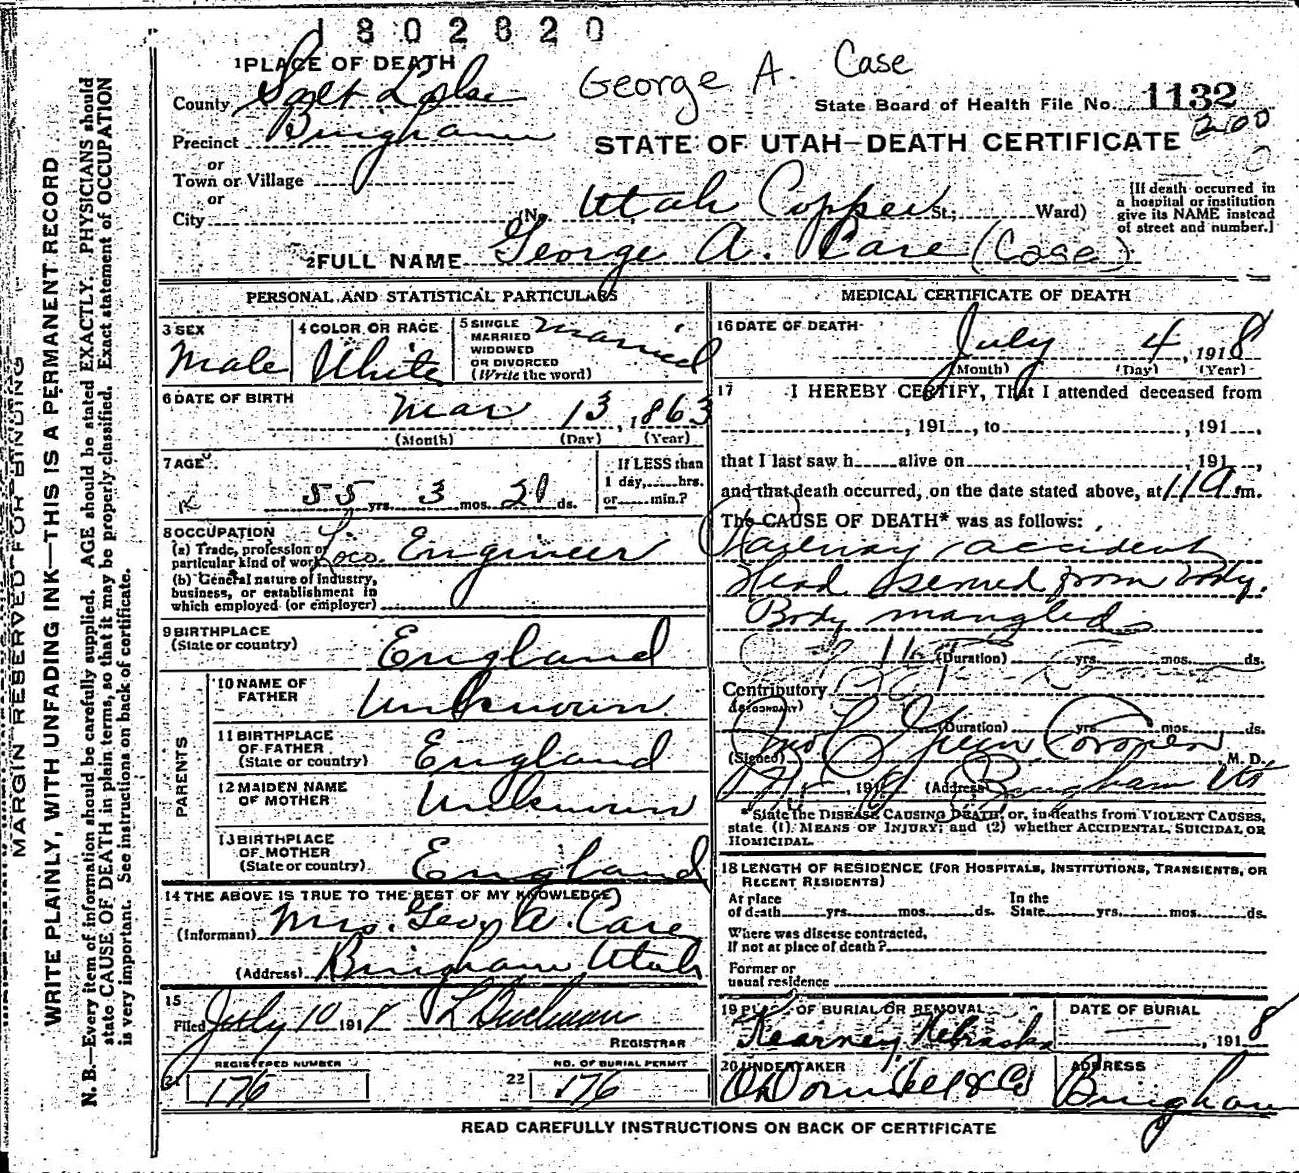 1802820
1 PLACE OF DEATH
George A. Case
County Salt Lake
State Board of Health File No. 1132
Precinct Bingham
200
STATE OF UTAH—DEATH CERTIFICATE
or
Town or Village
or
City
(No. Utah Copper St.; Ward)
[If death occurred in
a hospital or institution
give its NAME instead
of street and number.]
2 FULL NAME George A. Care (Case)
PERSONAL AND STATISTICAL PARTICULARS
3 SEX
Male
4 COLOR OR RACE
White
5 SINGLE
MARRIED
WIDOWED
OR DIVORCED
(Write the word)
Married
6 DATE OF BIRTH
Mar 13, 1863
(Month) (Day) (Year)
7 AGE
55 yrs. 3 mos. 21 ds.
If LESS than
1 day, hrs.
or min.?
8 OCCUPATION
(a) Trade, profession or
particular kind of work Loco. Engineer
(b) General nature of industry,
business, or establishment in
which employed (or employer)
9 BIRTHPLACE
(State or country)
England
PARENTS
10 NAME OF
FATHER
Unknown
11 BIRTHPLACE
OF FATHER
(State or country)
England
12 MAIDEN NAME
OF MOTHER
Unknown
13 BIRTHPLACE
OF MOTHER
(State or country)
England
14 THE ABOVE IS TRUE TO THE BEST OF MY KNOWLEDGE
(Informant) Mrs. Geo. A. Care
(Address) Bingham Utah
15
Filed July 10 1918
REGISTRAR
REGISTERED NUMBER
21 176
NO. OF BURIAL PERMIT
22 176
MEDICAL CERTIFICATE OF DEATH
16 DATE OF DEATH
July 4, 1918
(Month) (Day) (Year)
17 I HEREBY CERTIFY, That I attended deceased from
, 191 , to , 191 ,
that I last saw h alive on , 191 ,
and that death occurred, on the date stated above, at 119 m.
The CAUSE OF DEATH* was as follows:
Railway accident
Head severed from body.
Body mangled
(Duration) yrs. mos. ds.
Contributory
(SECONDARY)
(Duration) yrs. mos. ds.
(Signed) Jno C Green Coroner M. D.
, 191 8 (Address) Bingham Ut
*State the DISEASE CAUSING DEATH, or, in deaths from VIOLENT CAUSES,
state (1) MEANS OF INJURY; and (2) whether ACCIDENTAL, SUICIDAL OR
HOMICIDAL.
18 LENGTH OF RESIDENCE (FOR HOSPITALS, INSTITUTIONS, TRANSIENTS, OR
RECENT RESIDENTS)
At place
of death yrs. mos. ds.
In the
State yrs. mos. ds.
Where was disease contracted,
If not at place of death?
Former or
usual residence
19 PLACE OF BURIAL OR REMOVAL
Kearney Nebraska
DATE OF BURIAL
, 1918
20 UNDERTAKER
O'Donnell & Co
ADDRESS
Bingham
READ CAREFULLY INSTRUCTIONS ON BACK OF CERTIFICATE
MARGIN RESERVED FOR BINDING
WRITE PLAINLY, WITH UNFADING INK—THIS IS A PERMANENT RECORD
N. B.—Every item of information should be carefully supplied. AGE should be stated EXACTLY. PHYSICIANS should
state CAUSE OF DEATH in plain terms, so that it may be properly classified. Exact statement of OCCUPATION
is very important. See instructions on back of certificate.